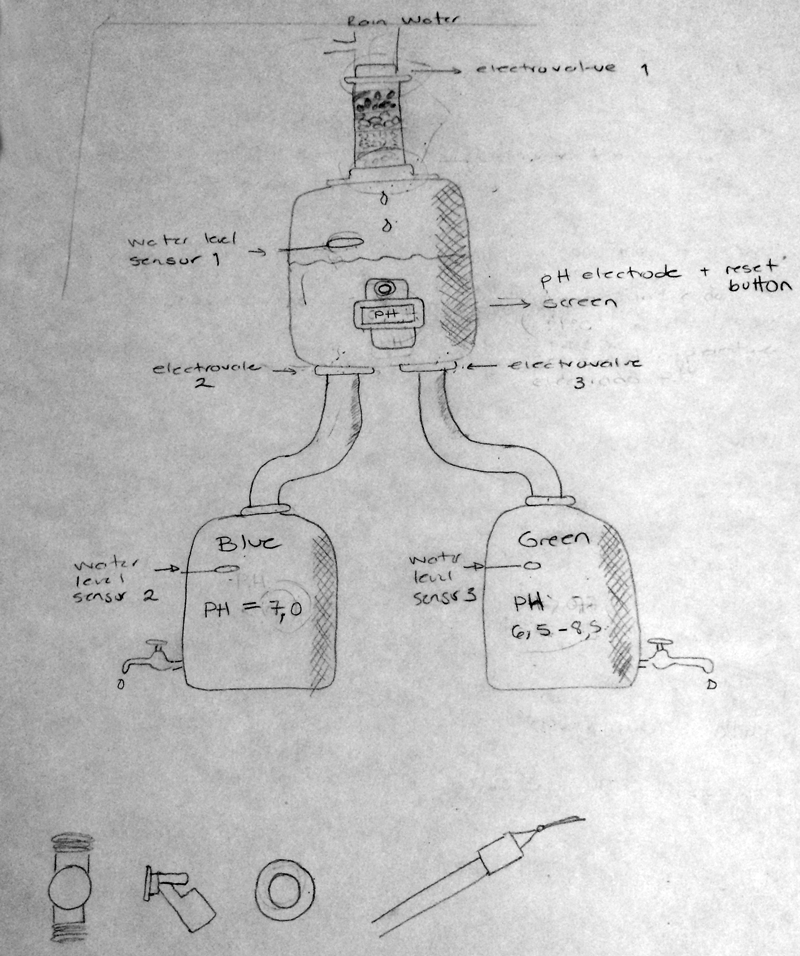 Rain Water
electrovalvue 1
water level
sensur 1
pH electrode + reset
button
screen
PH
H
electrovale
2
electrovalve
3
Blue
Green
water
level
sensur 2
water
level
sensur 3
PH = 7,0
PH
6,5 - 8,5